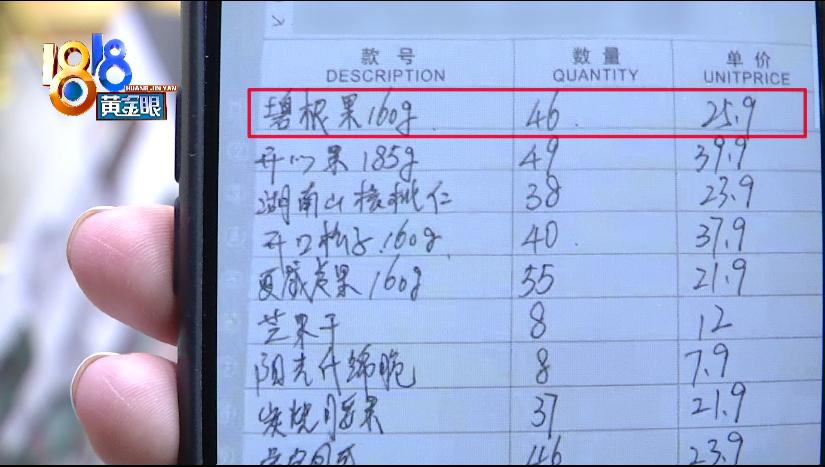 1818
HUANG JIN YAN
黄金眼
款号 数量 单价
DESCRIPTION QUANTITY UNITPRICE
碧根果160g 46 25.9
开心果185g 49 39.9
湖南山核桃仁 38 23.9
开口松子160g 40 37.9
夏威夷果160g 35 21.9
芒果干 8 12
阳光什锦脆 8 7.9
炭烧腰果 37 21.9
46 23.9